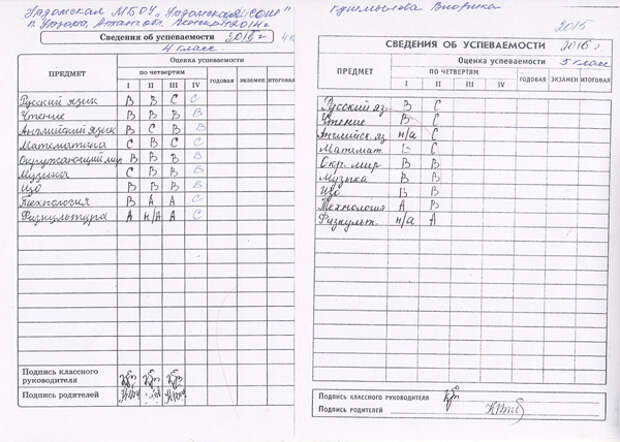 Урдомская МБОУ "Урдомская СОШ"
п. Урдома,
Сведения об успеваемости 2016 г
4 класс
ПРЕДМЕТ
Оценка успеваемости
ПО ЧЕТВЕРТЯМ
ГОДОВАЯ ЭКЗАМЕН. ИТОГОВАЯ
I II III IV
Русский язык В В С С
Чтение В В В В
Английский язык В С В В
Математика С В С С
Окружающий мир В В В В
Музыка С В В В
ИЗО В В В В
Технология В А А С
Физкультура А н/А А С
Подпись классного
руководителя
Подпись родителей
Виорика
2015
СВЕДЕНИЯ ОБ УСПЕВАЕМОСТИ 2016 г
5 класс
ПРЕДМЕТ
Оценка успеваемости
ПО ЧЕТВЕРТЯМ
ГОДОВАЯ ЭКЗАМЕН ИТОГОВАЯ
I II III IV
Русский яз В С
Чтение В С
Английск яз н/а С
Математ. С
Окр. мир В В
Музыка В В
ИЗО В В
Технология А В
Физкульт. н/а А
ПОДПИСЬ КЛАССНОГО РУКОВОДИТЕЛЯ
ПОДПИСЬ РОДИТЕЛЕЙ